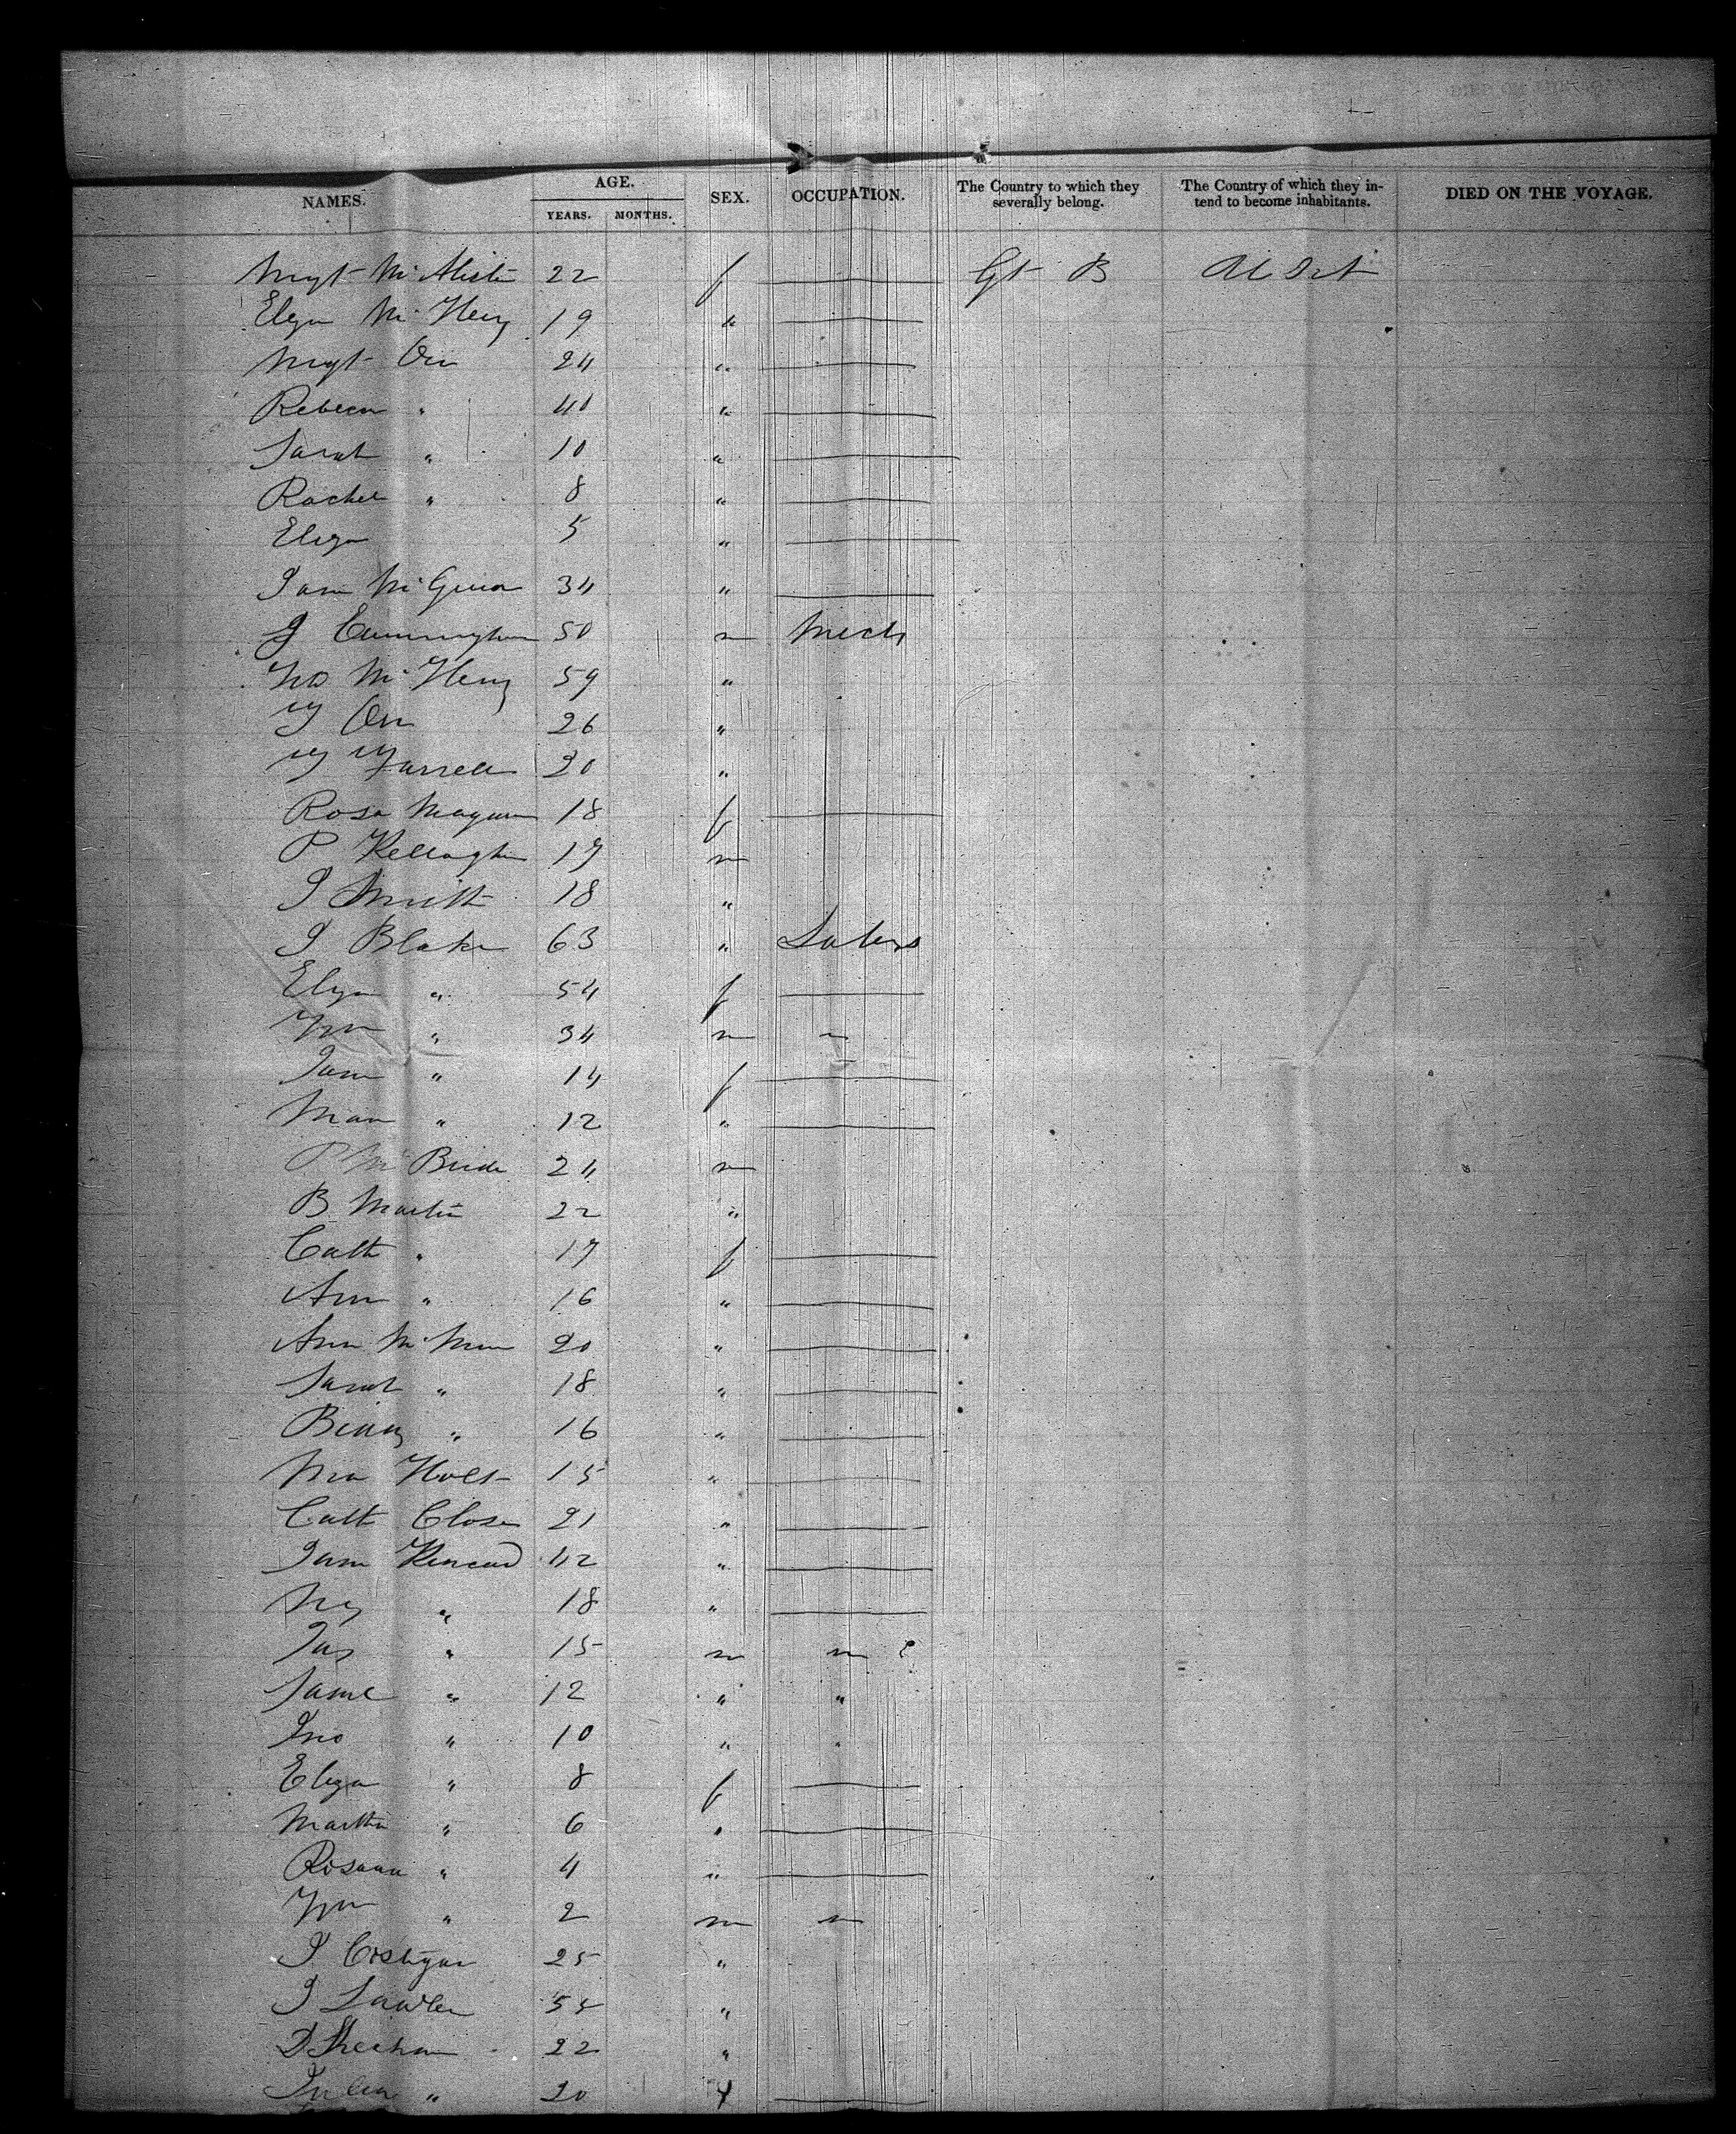 NAMES. AGE. YEARS. MONTHS. SEX. OCCUPATION. The Country to which they severally belong. The Country of which they intend to become inhabitants. DIED ON THE VOYAGE.
Mgt 22 f Gt B
Eliza McHenry 19 "
Mgt Orr 24 "
Rebecca " 40 "
Sarah " 10 "
Rachel " 8 "
Eliza 5 "
Jane 34 "
J Cunningham 50 m Mech
Jno McHenry 59 "
W Orr 26 "
W Farrell 20 "
Rosa 18 f
P Kellaghan 17 m
J Smith 18 "
J Blake 63 " Labors
Eliza " 54 f
Wm " 34 m "
Jane " 14 f
Mary " 12 "
P McBride 24 m
B Martin 22 "
Cath " 17 f
Ann " 16 "
Ann 20 "
Sarah " 18 "
" 16 "
Holt 15 "
Cath Close 21 "
Jane Kincaid 42 "
My " 18 "
Jas " 15 m
Saml " 12 " "
Jno " 10 " "
Eliza " 8 f
Martha " 6 "
Rosanna " 4 "
Wm " 2 m
J Costigan 25 "
J Lawler 54 "
D Sheehan 22 "
Julia " 20 f